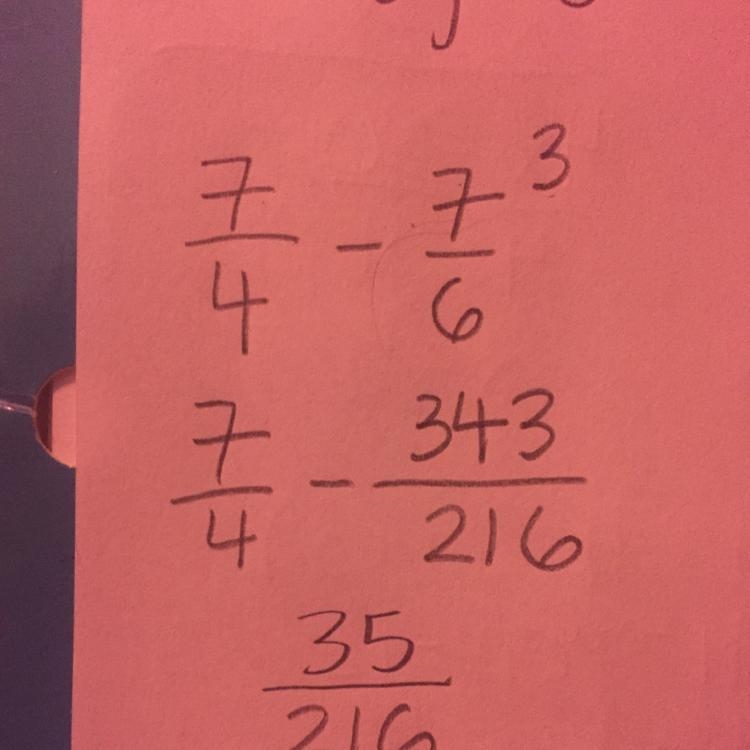 7/4 - 7/6 ³
7/4 - 343/216
35/216